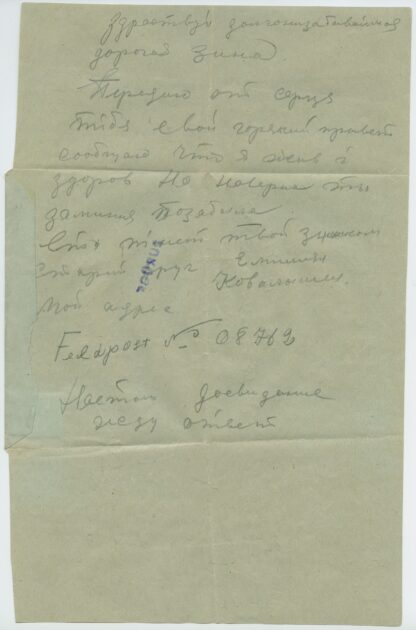 здраствуй долгонезабиваймая
дорогая Зина
Передаю от серця
тібя свой горячий привет
сообщаю что я жив і
здоров Но наверна ты
миня позабыла
пішет твой знаком
старий друг
Мой адрес
Feldpost № 08762
На етом досвидание
жду ответ